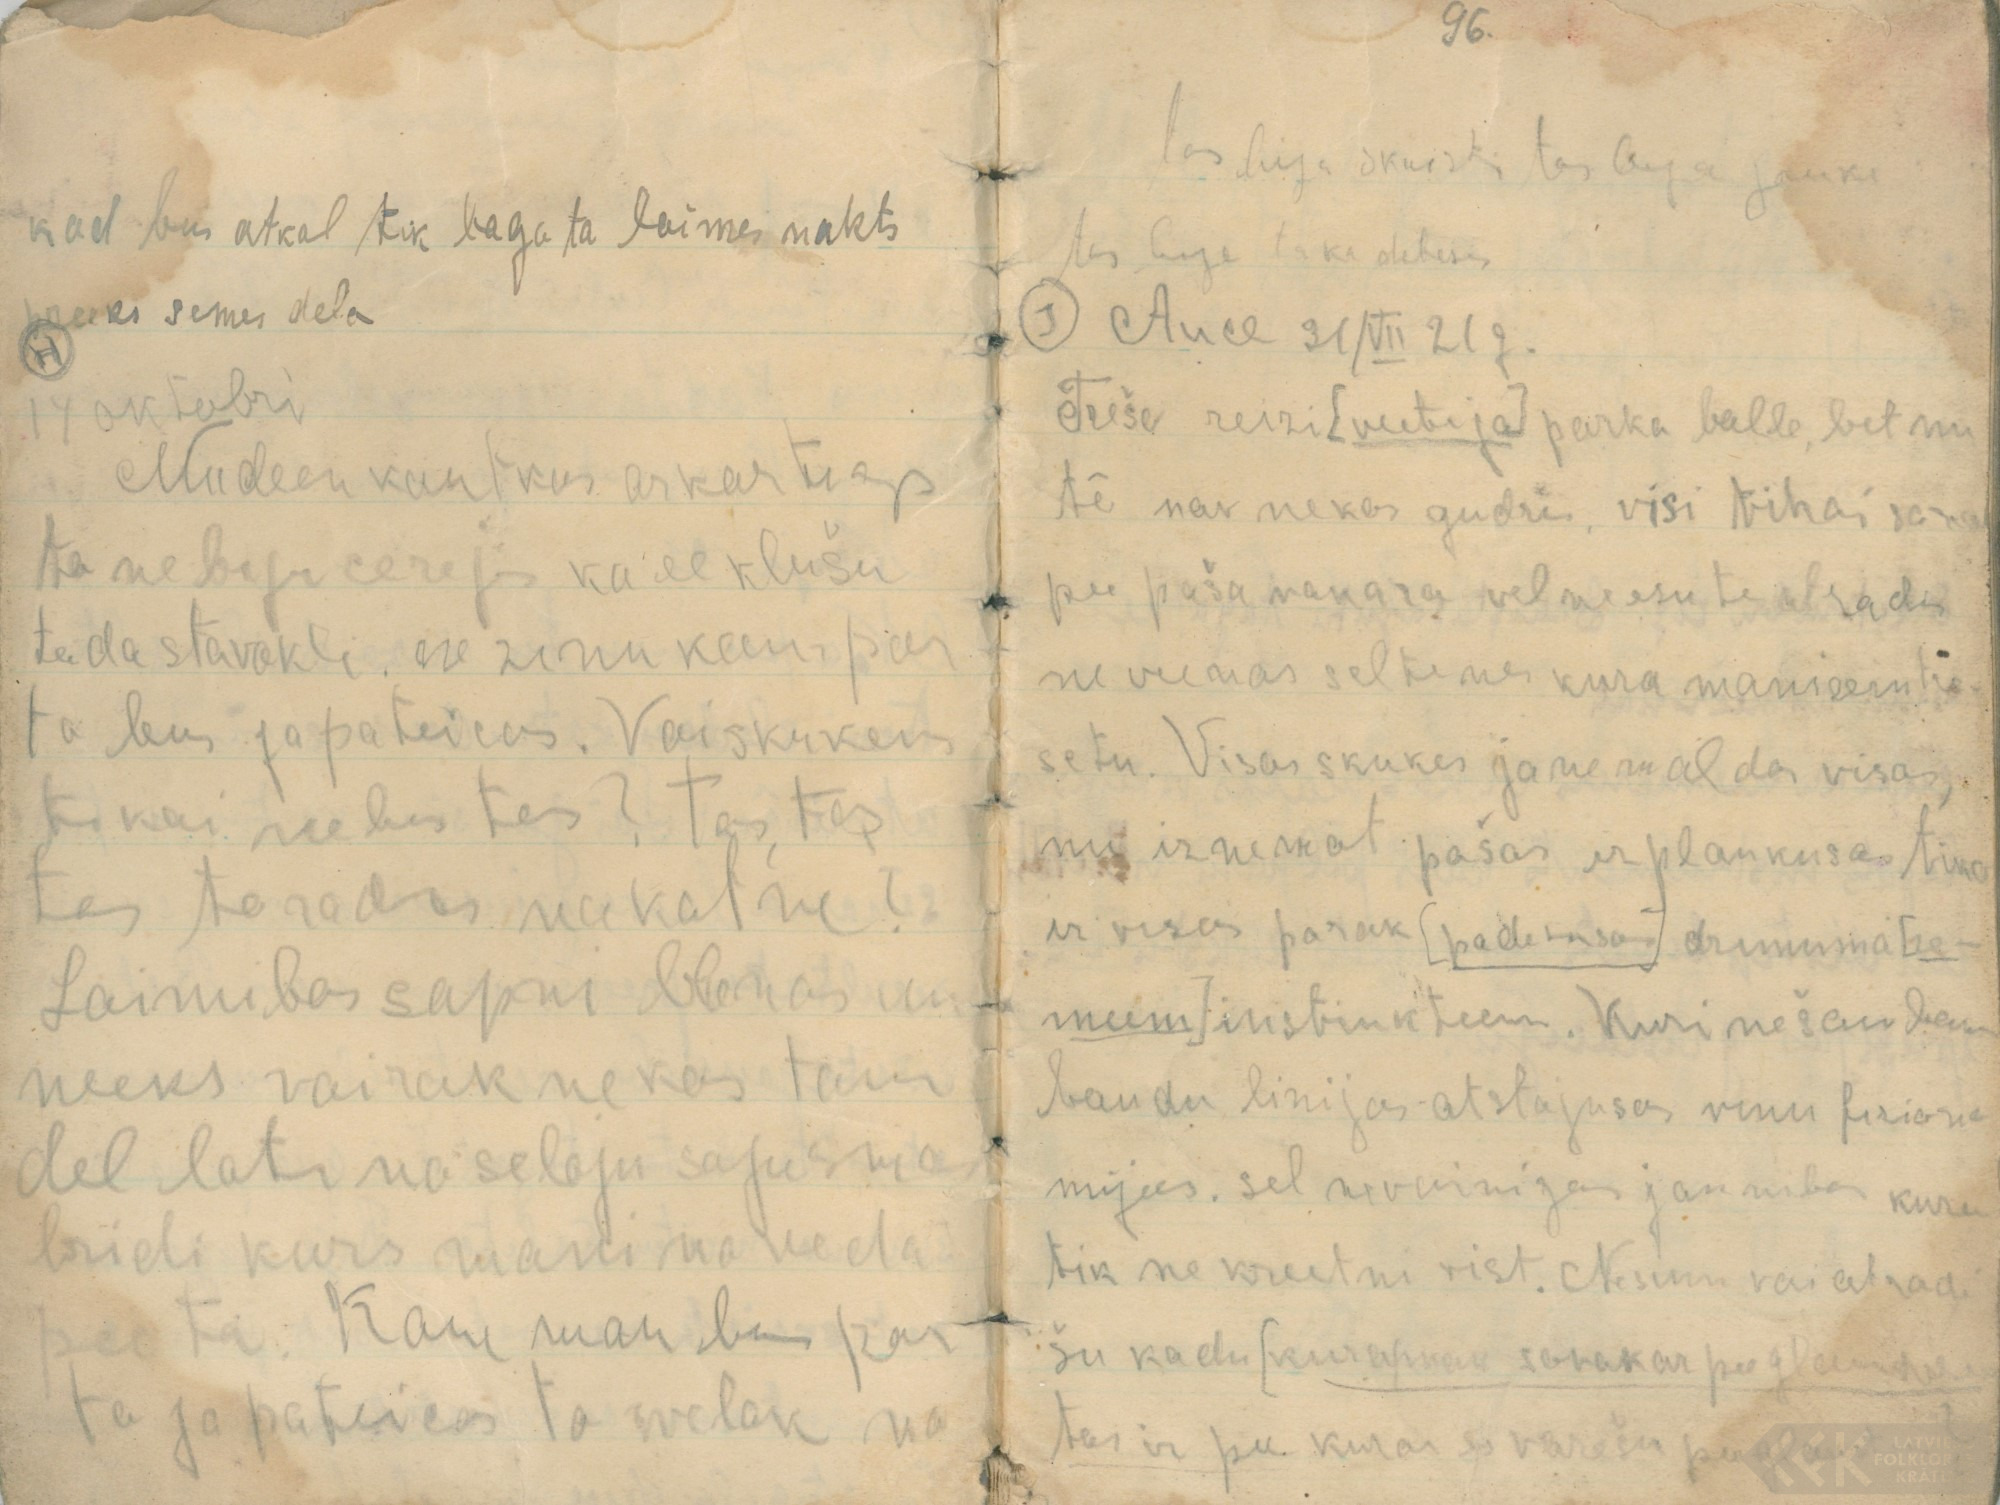 kad bus atkal tik bagata laimes nakts
preeks semes dela
H
14 oktobri
Nudeen kaut kas arkartigs
to nebuju cerejis ka eeklušu
tada stavokli. ne zinu kam par
to bus japateicas. Vai skukem
tikai nebus tas? Tas, tas
tas to rados neekat ne?
Laimibas sapni blenas un
neeks vairak nekas tam
del loti noseloju sajusmas
bridi kurs mani noveda
pee ta. Kam man bus par
to ja pateicas to velak no
96.
tas bija skaisti tas bija jauki
tas bija ka debesis
I Auce 31/VII 21g.
Treša reizi [veetija] parka balle, bet nu
tē nav nekas gudris, visi tikai
pee paša vakara vel neesu te atradis
ne veenas seltenes kura mani intere-
setu. Visas skukes ja ne maldos visas,
nu iznemot pašas ir plankusas tikai
ir visas parak [padevusas] drunuma [ze-
meem] instinkteem. Kuri nešaubam
baudu linijas atstajusas vinu fiziono
mijas. sel nevainigas jaunibas kuru
tik nekreetni rist. Nesinu vai atradi
šu kadu [kura man sovakar pee glaudisees
tas ir pee kuras es varešu
LATVIE
FOLKLOR
KRĀT